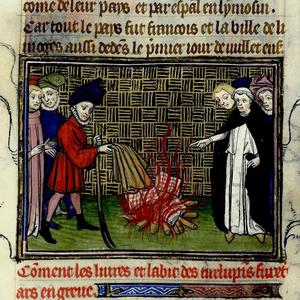 come de leur pays et par espāl en lymosin.
Car tout le pays fut francois et la ville de li
moges aussi dedēs le p̄mier iour de iuillet
Cōment les liures et labit des turlupīs furēt
ars en greue.